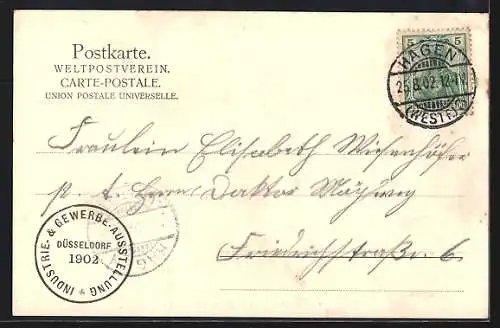 Postkarte.
WELTPOSTVEREIN.
CARTE-POSTALE.
UNION POSTALE UNIVERSELLE.
5 5
HAGEN
25.8.02.12-1N.
(WESTF.)
Fräulein Elisabeth Wiesenhöfer
p. A. Herrn Doktor
Friedrichstraße 6.
INDUSTRIE- & GEWERBE-AUSSTELLUNG
DÜSSELDORF
1902